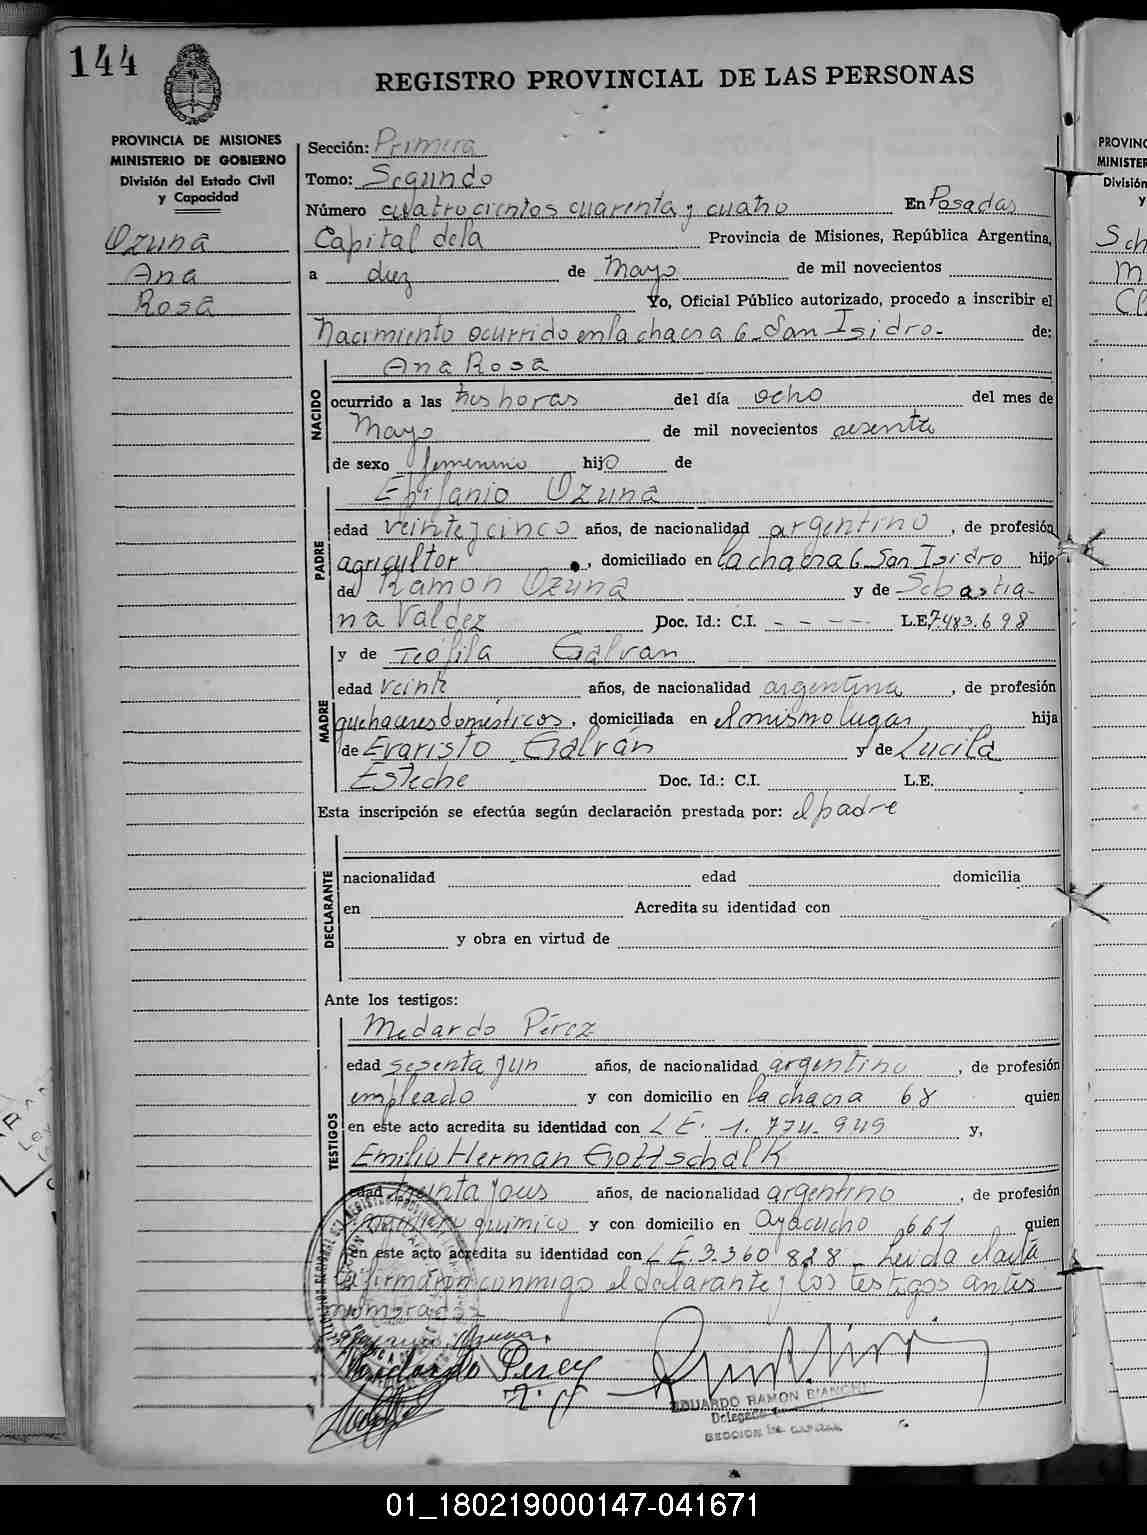 144
REGISTRO PROVINCIAL DE LAS PERSONAS
PROVINCIA DE MISIONES
MINISTERIO DE GOBIERNO
División del Estado Civil
y Capacidad
Ozuna
Ana
Rosa
Sección: Primera
Tomo: Segundo
Número cuatrocientos cuarenta y cuatro En Posadas
Capital dela Provincia de Misiones, República Argentina,
a diez de Mayo de mil novecientos
Yo, Oficial Público autorizado, procedo a inscribir el
Nacimiento ocurrido en la chacra 6 San Isidro.- de:
NACIDO
Ana Rosa
ocurrido a las tres horas del día ocho del mes de
Mayo de mil novecientos sesenta
de sexo femenino hijo de
PADRE
Epifanio Ozuna
edad veinte y cinco años, de nacionalidad argentino, de profesión
agricultor, domiciliado en la chacra 6 San Isidro hijo
de Ramón Ozuna y de Sebastia-
na Valdez Doc. Id.: C.I. - - - - L.E. 7.483.698
MADRE
y de Teófila Galván
edad veinte años, de nacionalidad argentina, de profesión
quehaceres domésticos, domiciliada en el mismo lugar hija
de Evaristo Galván y de Lucila
Esteche Doc. Id.: C.I. L.E.
Esta inscripción se efectúa según declaración prestada por: el padre
DECLARANTE
nacionalidad edad domicilia
en Acredita su identidad con
y obra en virtud de
Ante los testigos:
TESTIGOS
Medardo Pérez
edad sesenta y un años, de nacionalidad argentino, de profesión
empleado y con domicilio en la chacra 68 quien
en este acto acredita su identidad con L.E. 1.774.949 y,
Emilio Herman Gottschalk
edad treinta y dos años, de nacionalidad argentino, de profesión
químico y con domicilio en Ayacucho 661 quien
en este acto acredita su identidad con L.E. 3.360.828 - Leida el acta
la firman conmigo el declarante y los testigos antes
nombrados
Ozuna
Medardo Perez
EDUARDO RAMON BIANCHI
Delegado
SECCION 1a. CAPITAL
PROVINC
MINISTER
División
y
Sch
M
Cl
01_180219000147-041671